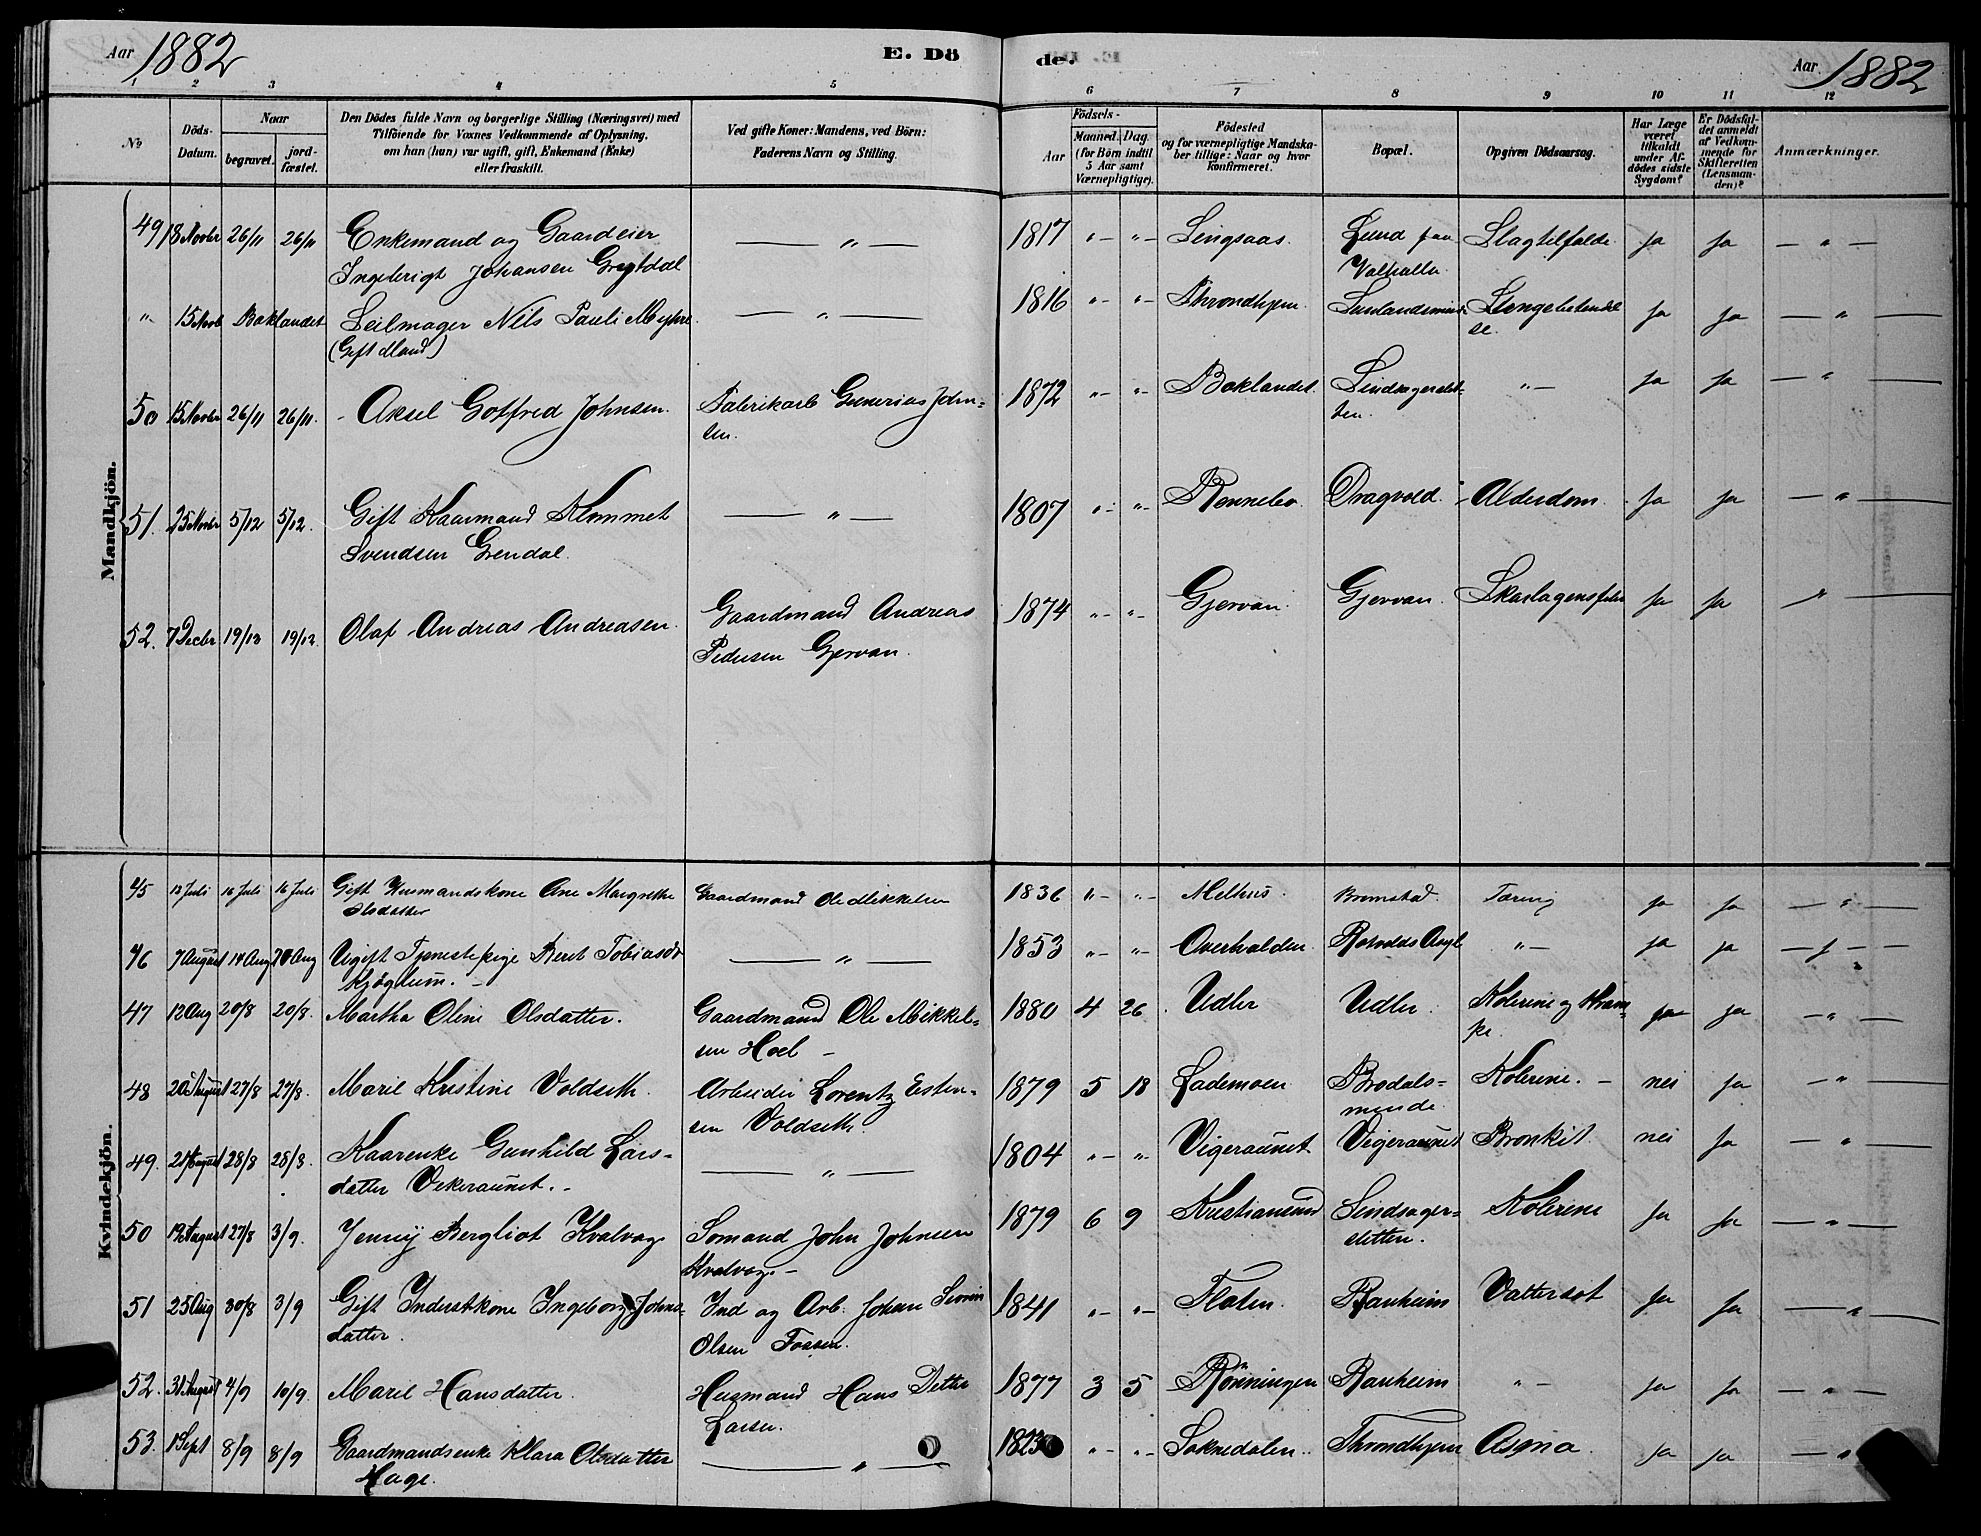 Aar 1882 E. Dö de. Aar 1882
1 2 3 4 5 6 7 8 9 10 11 12
No
Döds-Datum.
Naar
begravet.
jord-fæstet.
Den Dödes fulde Navn og borgerlige Stilling (Næringsvei) med
Tilföiende for Voxnes Vedkommende af Oplysning,
om han (hun) var ugift, gift, Enkemand (Enke)
eller fraskilt.
Ved gifte Koner: Mandens, ved Börn:
Faderens Navn og Stilling.
Födsels-
Aar
Maaned. Dag.
(for Börn indtil
5 Aar samt
Værnepligtige).
Födested
og for værnepligtige Mandska-
ber tillige: Naar og hvor
konfirmeret.
Bopæl.
Opgiven Dödsaarsag.
Har Læge
været
tilkaldt
under Af-
dödes sidste
Sygdom?
Er Dödsfal-
det anmeldt
af Vedkom-
mende for
Skifteretten
(Lensman-
den)?
Anmærkninger.
Mandkjön.
49 18 Novbr 26/11 26/11 Enkemand og Gaardeier — " — 1817 "- "- Singsaas. Lund paa Slagtilfælde. ja ja — " —
Ingebrigt Johansen Valhalla.
" 15 Novb Baklandet Seilmager Nils Pauli — " — 1816 "- "- Throndhjem ja ja — " —
(Gift Mand) se.
50 15 Novbr 26/11 26/11. Aksel Gotfred Johnsen. Fabrikarb Gunerius John= 1872 "- "- Baklandet. " — ja ja — " —
sen. ten.
51. 25 Novbr 5/12 5/12. Gift Kaarmand Klommet — " — 1807 "- "- Rennebo Dragvold. Alderdom. ja ja — " —
Svendsen Grendal.
52. 7 Decbr 19/12 19/12. Olaf Andreas Andreasen. Gaardmand Andreas 1874 "- "- Gjervan. Gjervan. Skarlagensfeber ja ja "
Pedersen Gjervan.
Kvindekjön.
45 13 Juli 16 Juli 16 Juli Gift Husmandskone Ane Margrethe Gaardmand Ole Mikkelsen 1836 "- "- Melhus. Bromstad. Tæring ja ja — " —
Olsdatter
46 7 August 14 Aug Aug Ugift Tjenestepige Beret Tobiasdr — " — 1853 "- "- Overhalden Rotvolds Asyl " — ja ja
Kjøglum. —
47 12 Aug 20/8 20/8. Martha Oline Olsdatter. Gaardmand Ole Mikkel= 1880 4 26 Udler Udler. Kolerine og Kram= ja ja — " —
sen Hoel — pe.
48 20 August 27/8 27/8. Marie Kristine Voldseth Arbeider Lorentz Esten= 1879 5 18 Lademoen Brodals= Kolerine. — nei ja — " —
sen Voldseth. minde.
49. 21 August 28/8 28/8. Kaarenke Gunhild Lars= — " — 1804 "- " Vigeraunet Vigeraunet Bronkit nei ja — " —
datter Vikeraunet. —
50 19 August 27/8 3/9. Jenny Bergliot Kvalvaag Sømand John Johnsen 1879 6 9 Kristiansund Sindsager= Kolerine ja ja — " —
Kvalvaag — sletten.
51 25 Aug 30/8 3/9 Gift Inderstkone Ingeborg Johns= Ind og Arb. Johan Severin 1841 "- "- Floten. Ranheim Vattersot ja ja — " —
datter. Olsen Fossen.
52. 31 August 4/9 10/9. Marie Hansdatter. Husmand Hans Petter 1877 3 5 Rönningen Ranheim " — ja ja — " —
Larsen.
53. 1 Sept 8/9 8/9 Gaardmandsenke Klara Olsdatter — " — 1823 "- "- Soknedalen. Throndhjem Asma ja ja — "
Hage.